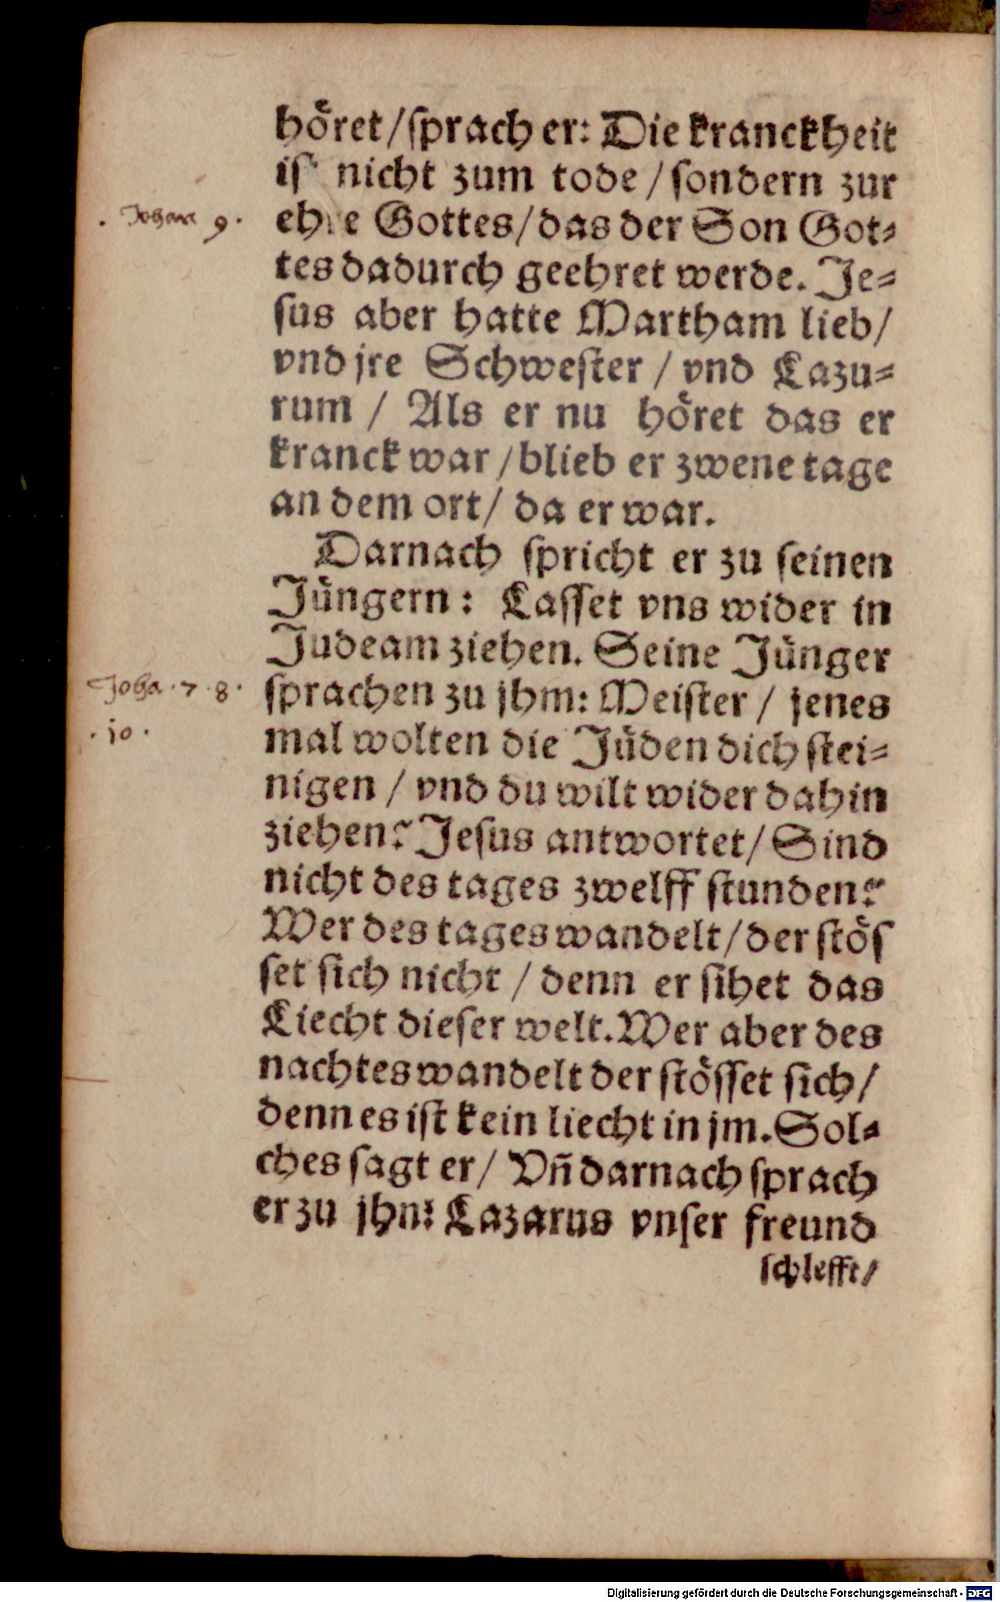 höret/sprach er: Die kranckheit
is nicht zum tode / sondern zur
. Johan 9 .
ehre Gottes/das der Son Got⸗
tes dadurch geehret werde. Je⸗
sus aber hatte Martham lieb/
vnd jre Schwester / vnd Lazu⸗
rum / Als er nu höret das er
kranck war /blieb er zwene tage
an dem ort/ da er war.
Darnach spricht er zu seinen
Jüngern: Lasset vns wider in
Judeam ziehen. Seine Jünger
Joha . 7 . 8 .
. jo .
sprachen zu jhm: Meister / jenes
mal wolten die Jüden dich stei⸗
nigen / vnd du wilt wider dahin
ziehen? Jesus antwortet/ Sind
nicht des tages zwelff stunden?
Wer des tages wandelt/der stös
set sich nicht / denn er sihet das
Liecht dieser welt. Wer aber des
nachtes wandelt der stösset sich/
denn es ist kein liecht in jm. Sol⸗
ches sagt er/ Vñ darnach sprach
er zu jhn: Lazarus vnser freund
schlefft/
Digitalisierung gefördert durch die Deutsche Forschungsgemeinschaft - DFG